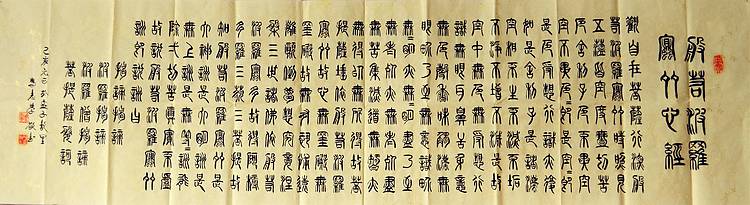 般若波羅
蜜多心經
觀自在菩薩行深般
若波羅蜜多時照見
五蘊皆空度一切苦
厄舍利子色不異空
空不異色=即是空=即
是色受想行識亦復
如是舍利子是諸法
空相不生不滅不垢
不淨不增不減是故
空中無色無受想行
識無眼耳鼻舌身意
無色聲香味觸法無
眼界乃至無意識界
無=明亦無=明盡乃至
無老死亦無老死盡
無苦集滅道無智亦
無得以無所得故菩
提薩埵依般若波羅
蜜多故心無罣礙無
罣礙故無有恐怖遠
離顛倒夢想究竟涅
槃三世諸佛依般若
波羅蜜多故得阿耨
多羅三藐三菩提故
知般若波羅蜜多是
大神咒是大明咒是
無上咒是無等=咒能
除一切苦真實不虛
故說般若波羅蜜多
咒即說咒曰
揭諦揭諦
波羅揭諦
波羅僧揭諦
菩提薩婆訶
己亥元月於孟子故里